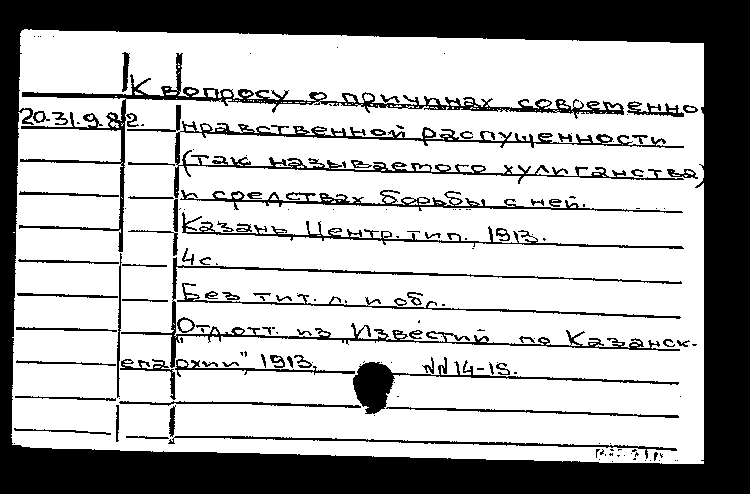 К вопросу о причинах современно
20.31.9.82. нравственной распущенности
(так называемого хулиганства)
и средствах борьбы с ней.
Казань, Центр. тип., 1913.
4с.
Без тит. л. и обл.
"Отд. отт. из "Известий по Казанск.
епархии", 1913. №№14-15.